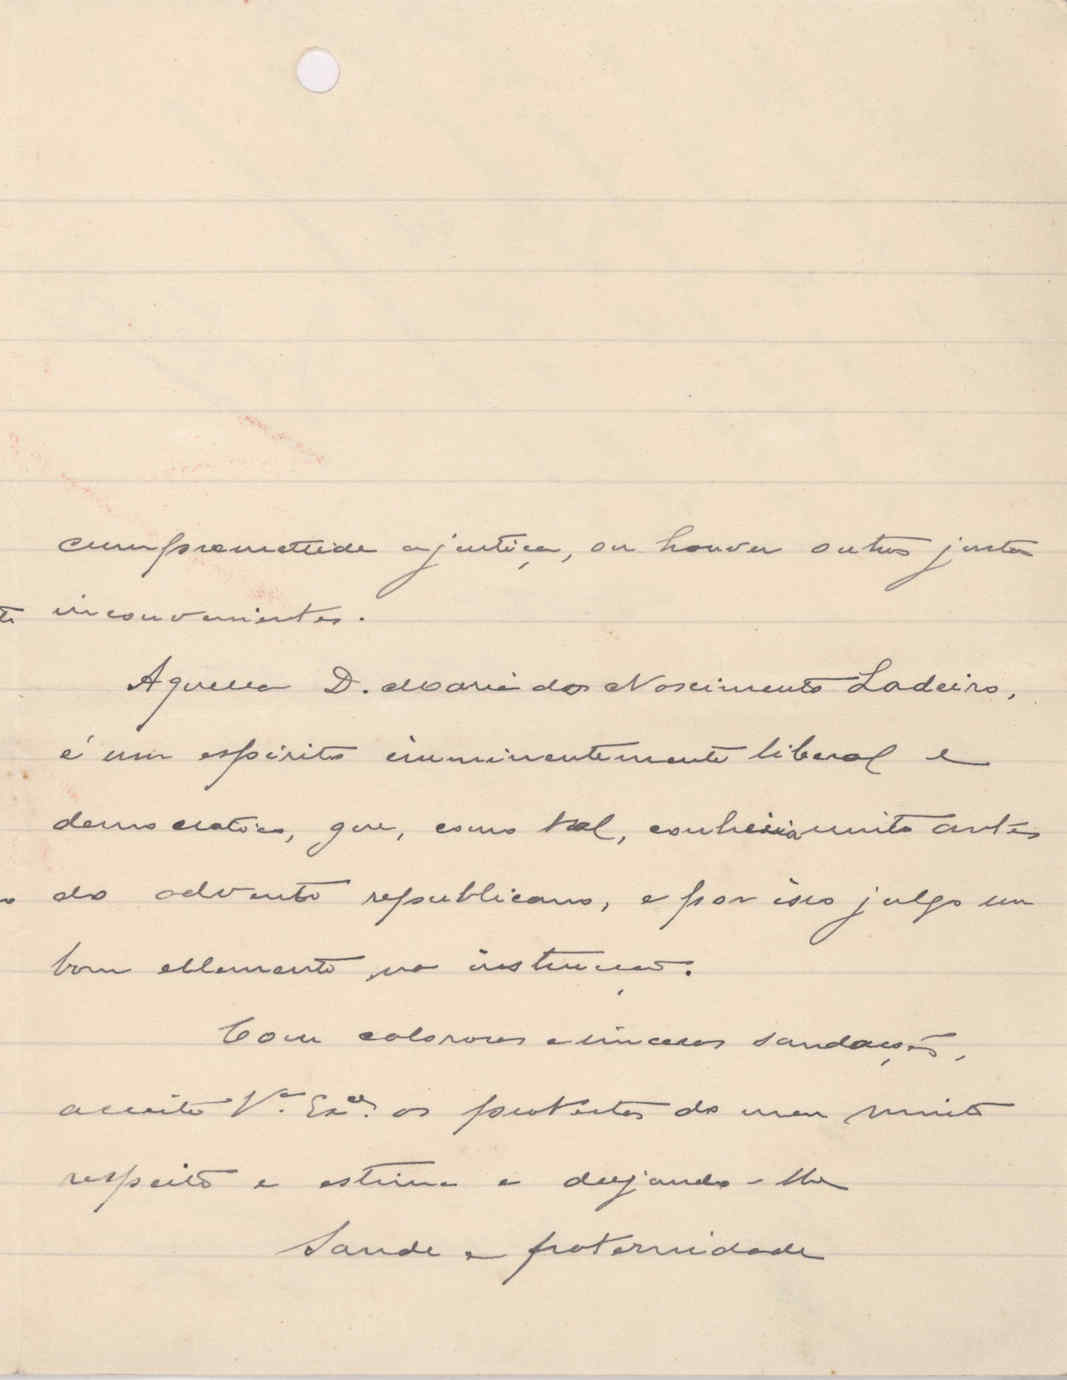 cumpromettida a justiça, ou houver outros justos
inconvenientes.
Aquella D. Maria dos Nascimento Ladeiro,
é um espirito imminentemente liberal e
democratico, que, como tal, conhecia muito antes
do advento republicano, e por isso julgo um
bom ellemento na instrucção.
Com calorosos e sinceros saudações,
acceite V.ª Ex.cia os protestos do meu muito
respeito e estima e desejando-lhe
Saude e fraternidade